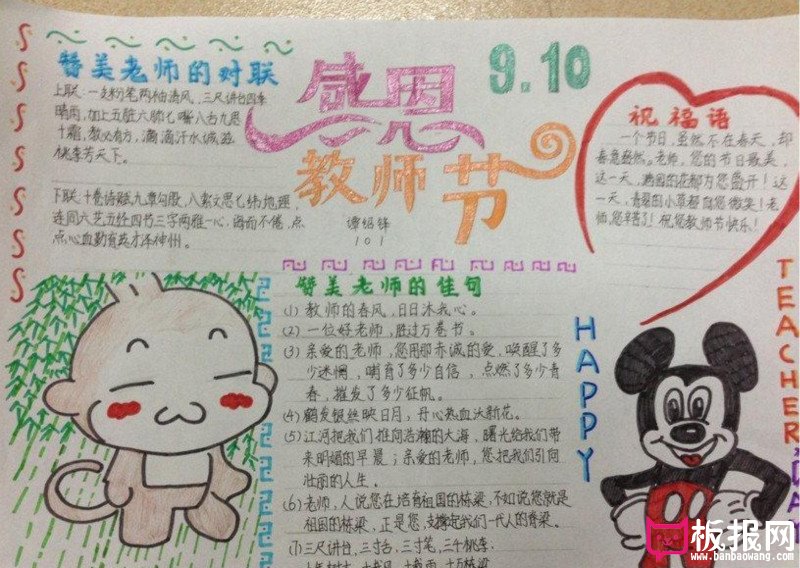 感恩
9.10
教师节
谭绍锋
101
赞美老师的对联
上联:一支粉笔两袖清风,三尺讲台四季
晴雨,加上五脏六腑七嘴八舌九思
十霜,教必有方,滴滴汗水诚滋
桃李芳天下。
下联:十卷诗赋,九章勾股,八索文思七纬地理
连同六艺五经四书三字两雅一心,诲而不倦,点
点心血勤育英才泽神州。
祝福语
一个节日,虽然不在春天,却
春意盎然。老师,您的节日最美,
这一天,
这一天,青翠的小草都向您微笑!老
师,您辛苦了!祝您教师节快乐!
赞美老师的佳句
(1) 教师的春风,日日沐我心。
(2) 一位好老师,胜过万卷书。
(3) 亲爱的老师,您用那赤诚的爱,唤醒了多
少迷惘,哺育了多少自信,点燃了多少青
春,摧发了多少征帆。
(4) 鹤发银丝映日月,丹心热血沃新花。
(5) 江河把我们推向浩瀚的大海,曙光给我们带
来明媚的早晨;亲爱的老师,您把我们引向
壮丽的人生。
(6) 老师,人说您在培育祖国的栋梁,不如说您就是
祖国的栋梁,正是您,支撑起我们一代人的脊梁。
(7) 三尺讲台,三寸舌,三寸笔,三千桃李;
十年树木,十载风,十载雨,十万栋梁
HAPPY
TEACHER
DA
板报网
www.banbaowang.com